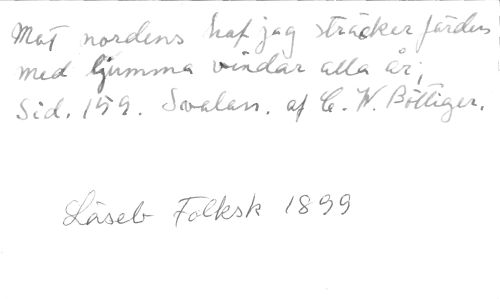 Mot nordens haf jag sträcker färden
med ljumma vindar alla år;
Sid. 159. Svalan. af C. W. Böttiger.
Läseb Folksk 1899